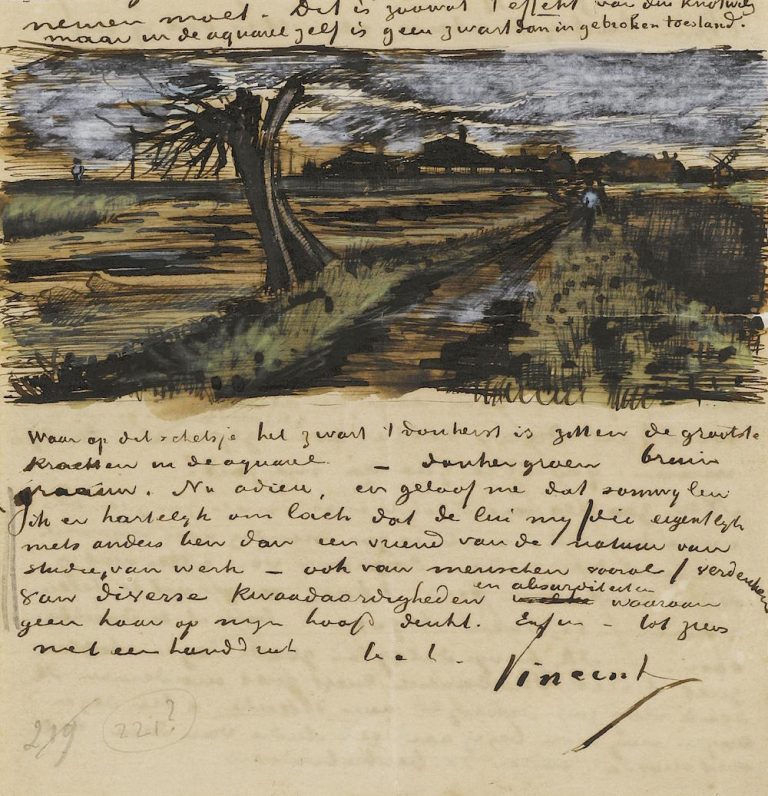 nemen moet. Dit is zoowat 't effekt van den knotwilg
maar in de aquarel zelf is geen zwart dan in gebroken toestand.
Waar op dit schetsje het zwart 't donkerst is zitten de grootste
krachten in de aquarel – donkergroen bruin
graauw. Nu adieu, en geloof me dat somwijlen
ik er hartelijk om lach dat de lui mij /die eigentlijk
niets anders ben dan een vriend van de natuur van
studie, van werk – ook van menschen vooral/ verdenken
van diverse kwaadaardigheden en absurditeiten waaraan
geen haar op mijn hoofd denkt. Enfin – tot ziens
met een handdruk t. à t.
Vincent
219 221?